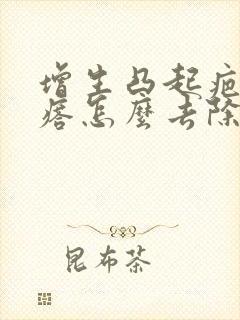 增生凸起疤
痞怎麼去除
昆布茶